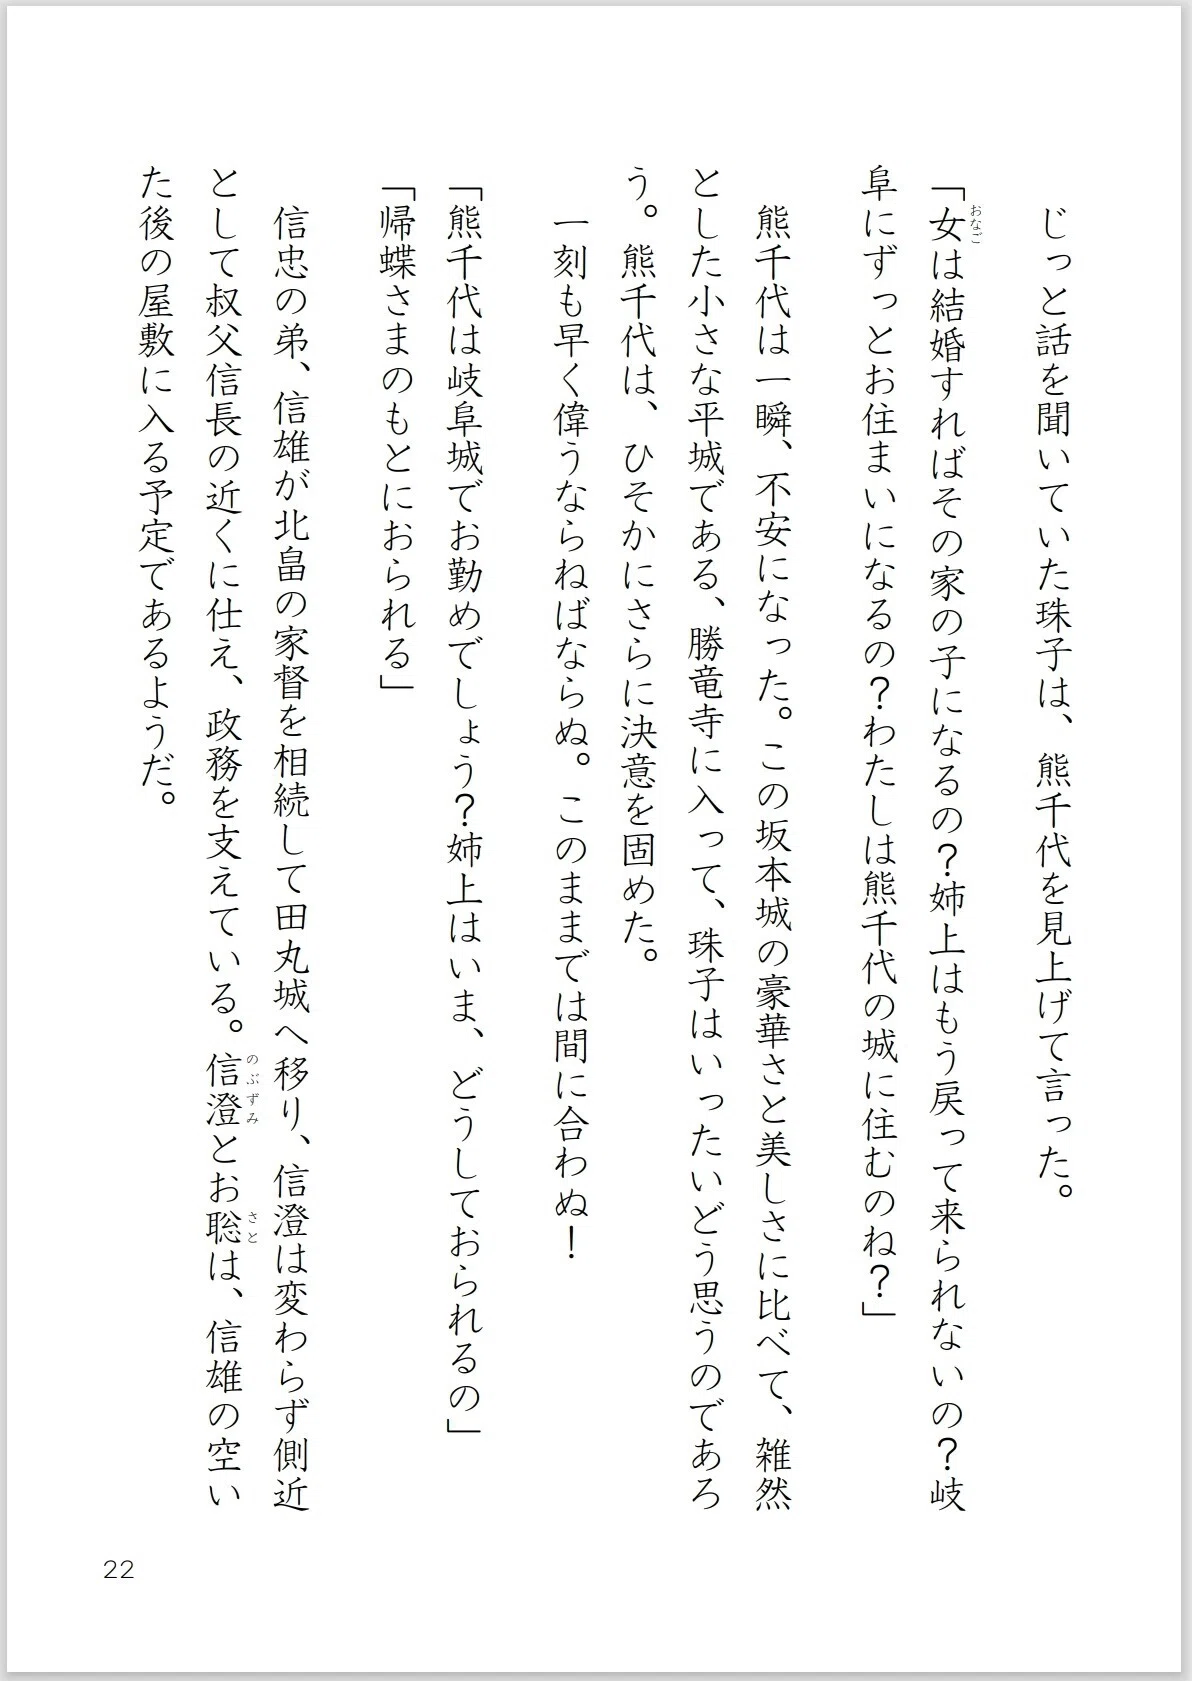 じっと話を聞いていた珠子は、熊千代を見上げて言った。
「女は結婚すればその家の子になるの？姉上はもう戻って来られないの？岐
おなご
阜にずっとお住まいになるの？わたしは熊千代の城に住むのね？」
熊千代は一瞬、不安になった。この坂本城の豪華さと美しさに比べて、雑然
とした小さな平城である、勝竜寺に入って、珠子はいったいどう思うのであろ
う。熊千代は、ひそかにさらに決意を固めた。
一刻も早く偉うならねばならぬ。このままでは間に合わぬ！
「熊千代は岐阜城でお勤めでしょう？姉上はいま、どうしておられるの」
「帰蝶さまのもとにおられる」
信忠の弟、信雄が北畠の家督を相続して田丸城へ移り、信澄は変わらず側近
として叔父信長の近くに仕え、政務を支えている。信澄とお聡は、信雄の空い
のぶずみ
さと
た後の屋敷に入る予定であるようだ。
22